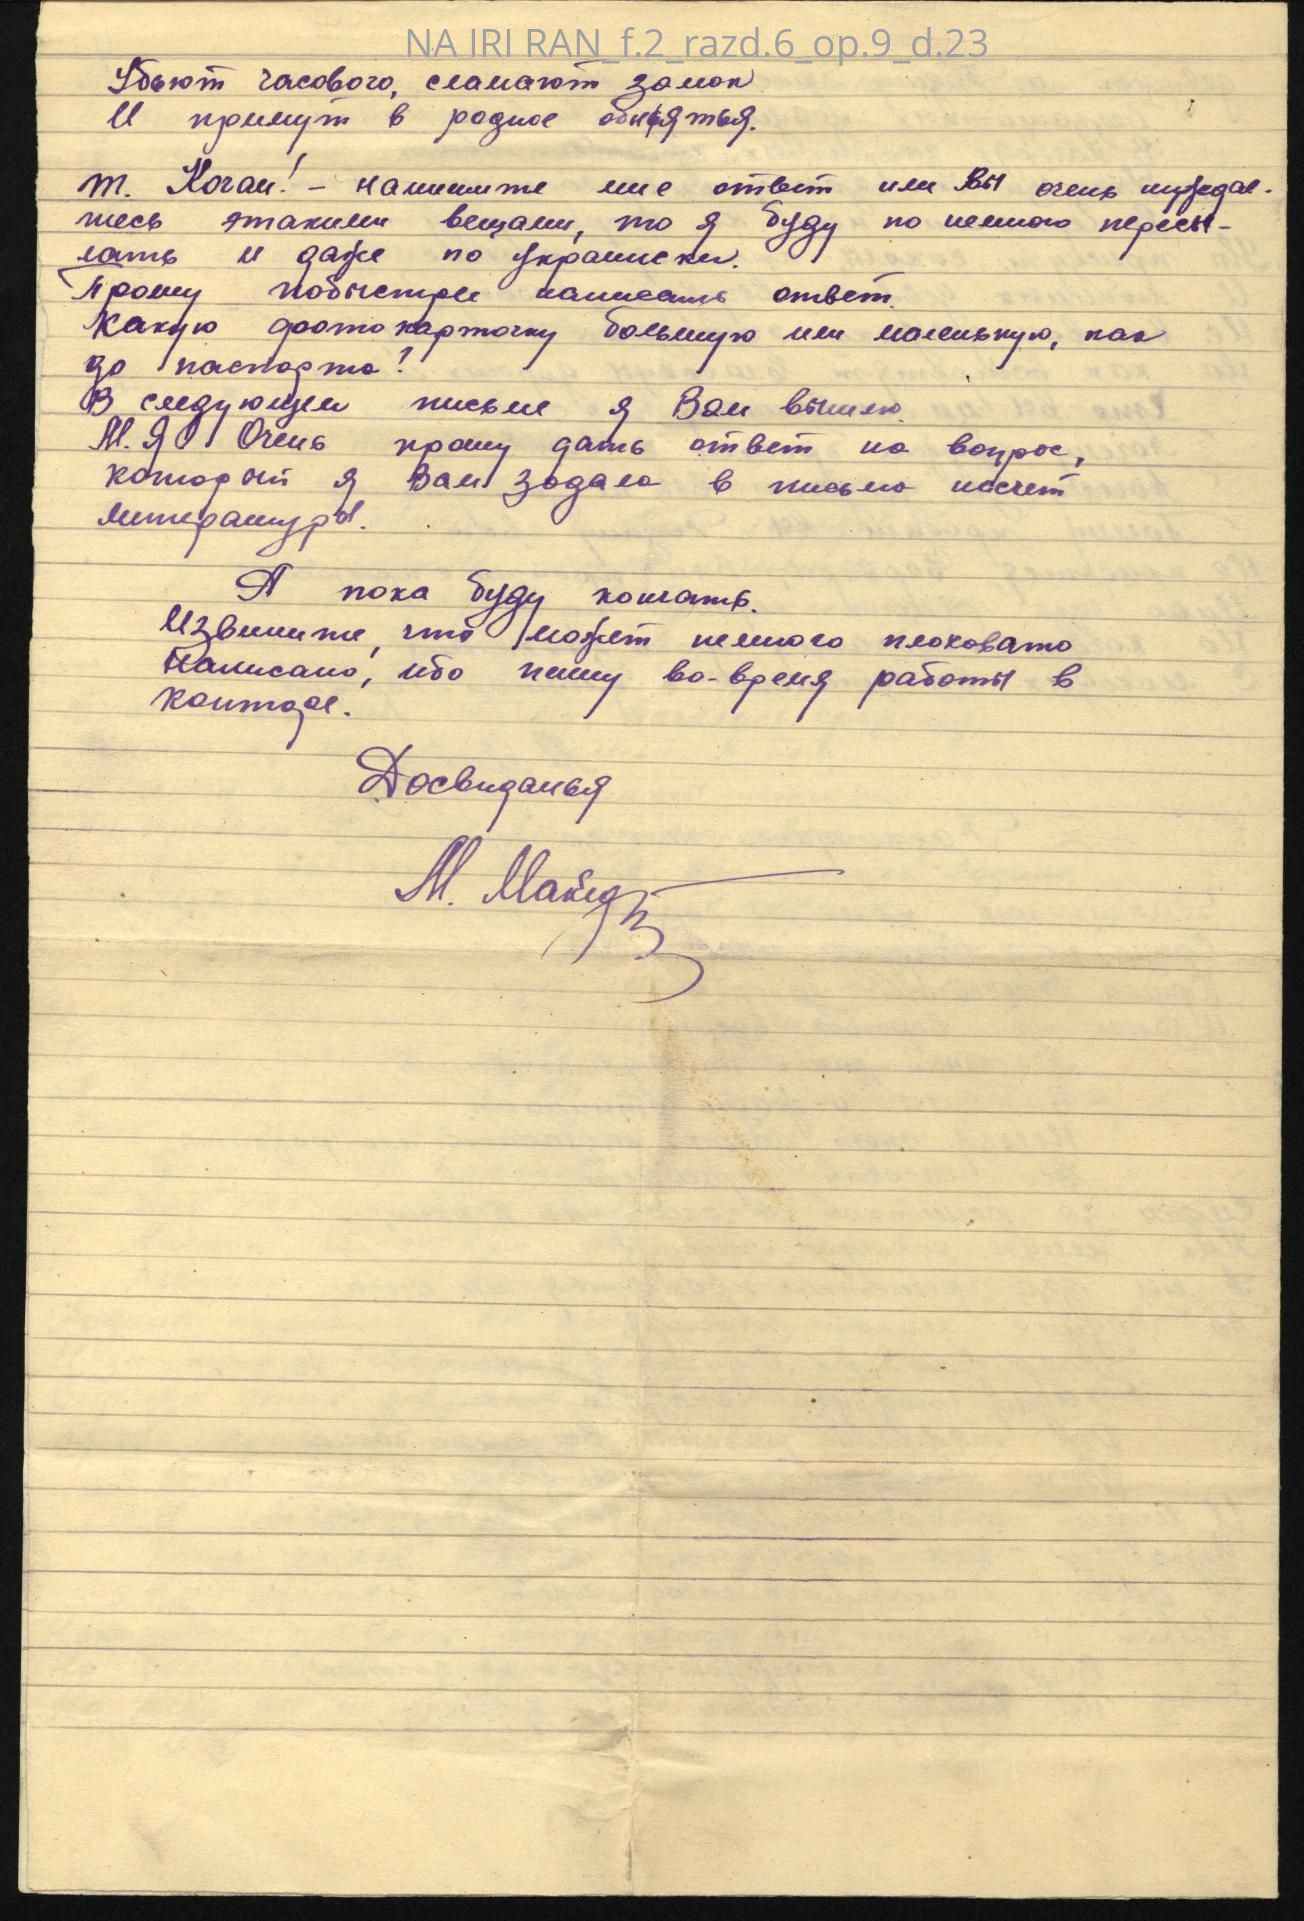 NA IRI RAN_f.2_razd.6_op.9_d.23
Убьют часового, сламают замок
И примут в родное обнятья.
т. Коган! – напишите мне ответ или Вы очень нуждае-
тесь этакими вещами, то я буду по немного пересы-
лать и даже по украински.
Прошу побыстрее написать ответ.
Какую фотокарточку большую или маленькую, как
до паспорта?
В следующем письме я Вам вышлю.
М.Я. Очень прошу дать ответ на вопрос,
который я Вам задала в письмо насчет
литературы.
А пока буду кончать.
Извините, что может немного плоховато
написано, ибо пишу во-время работы в
конторе.
Досвиданья
М.